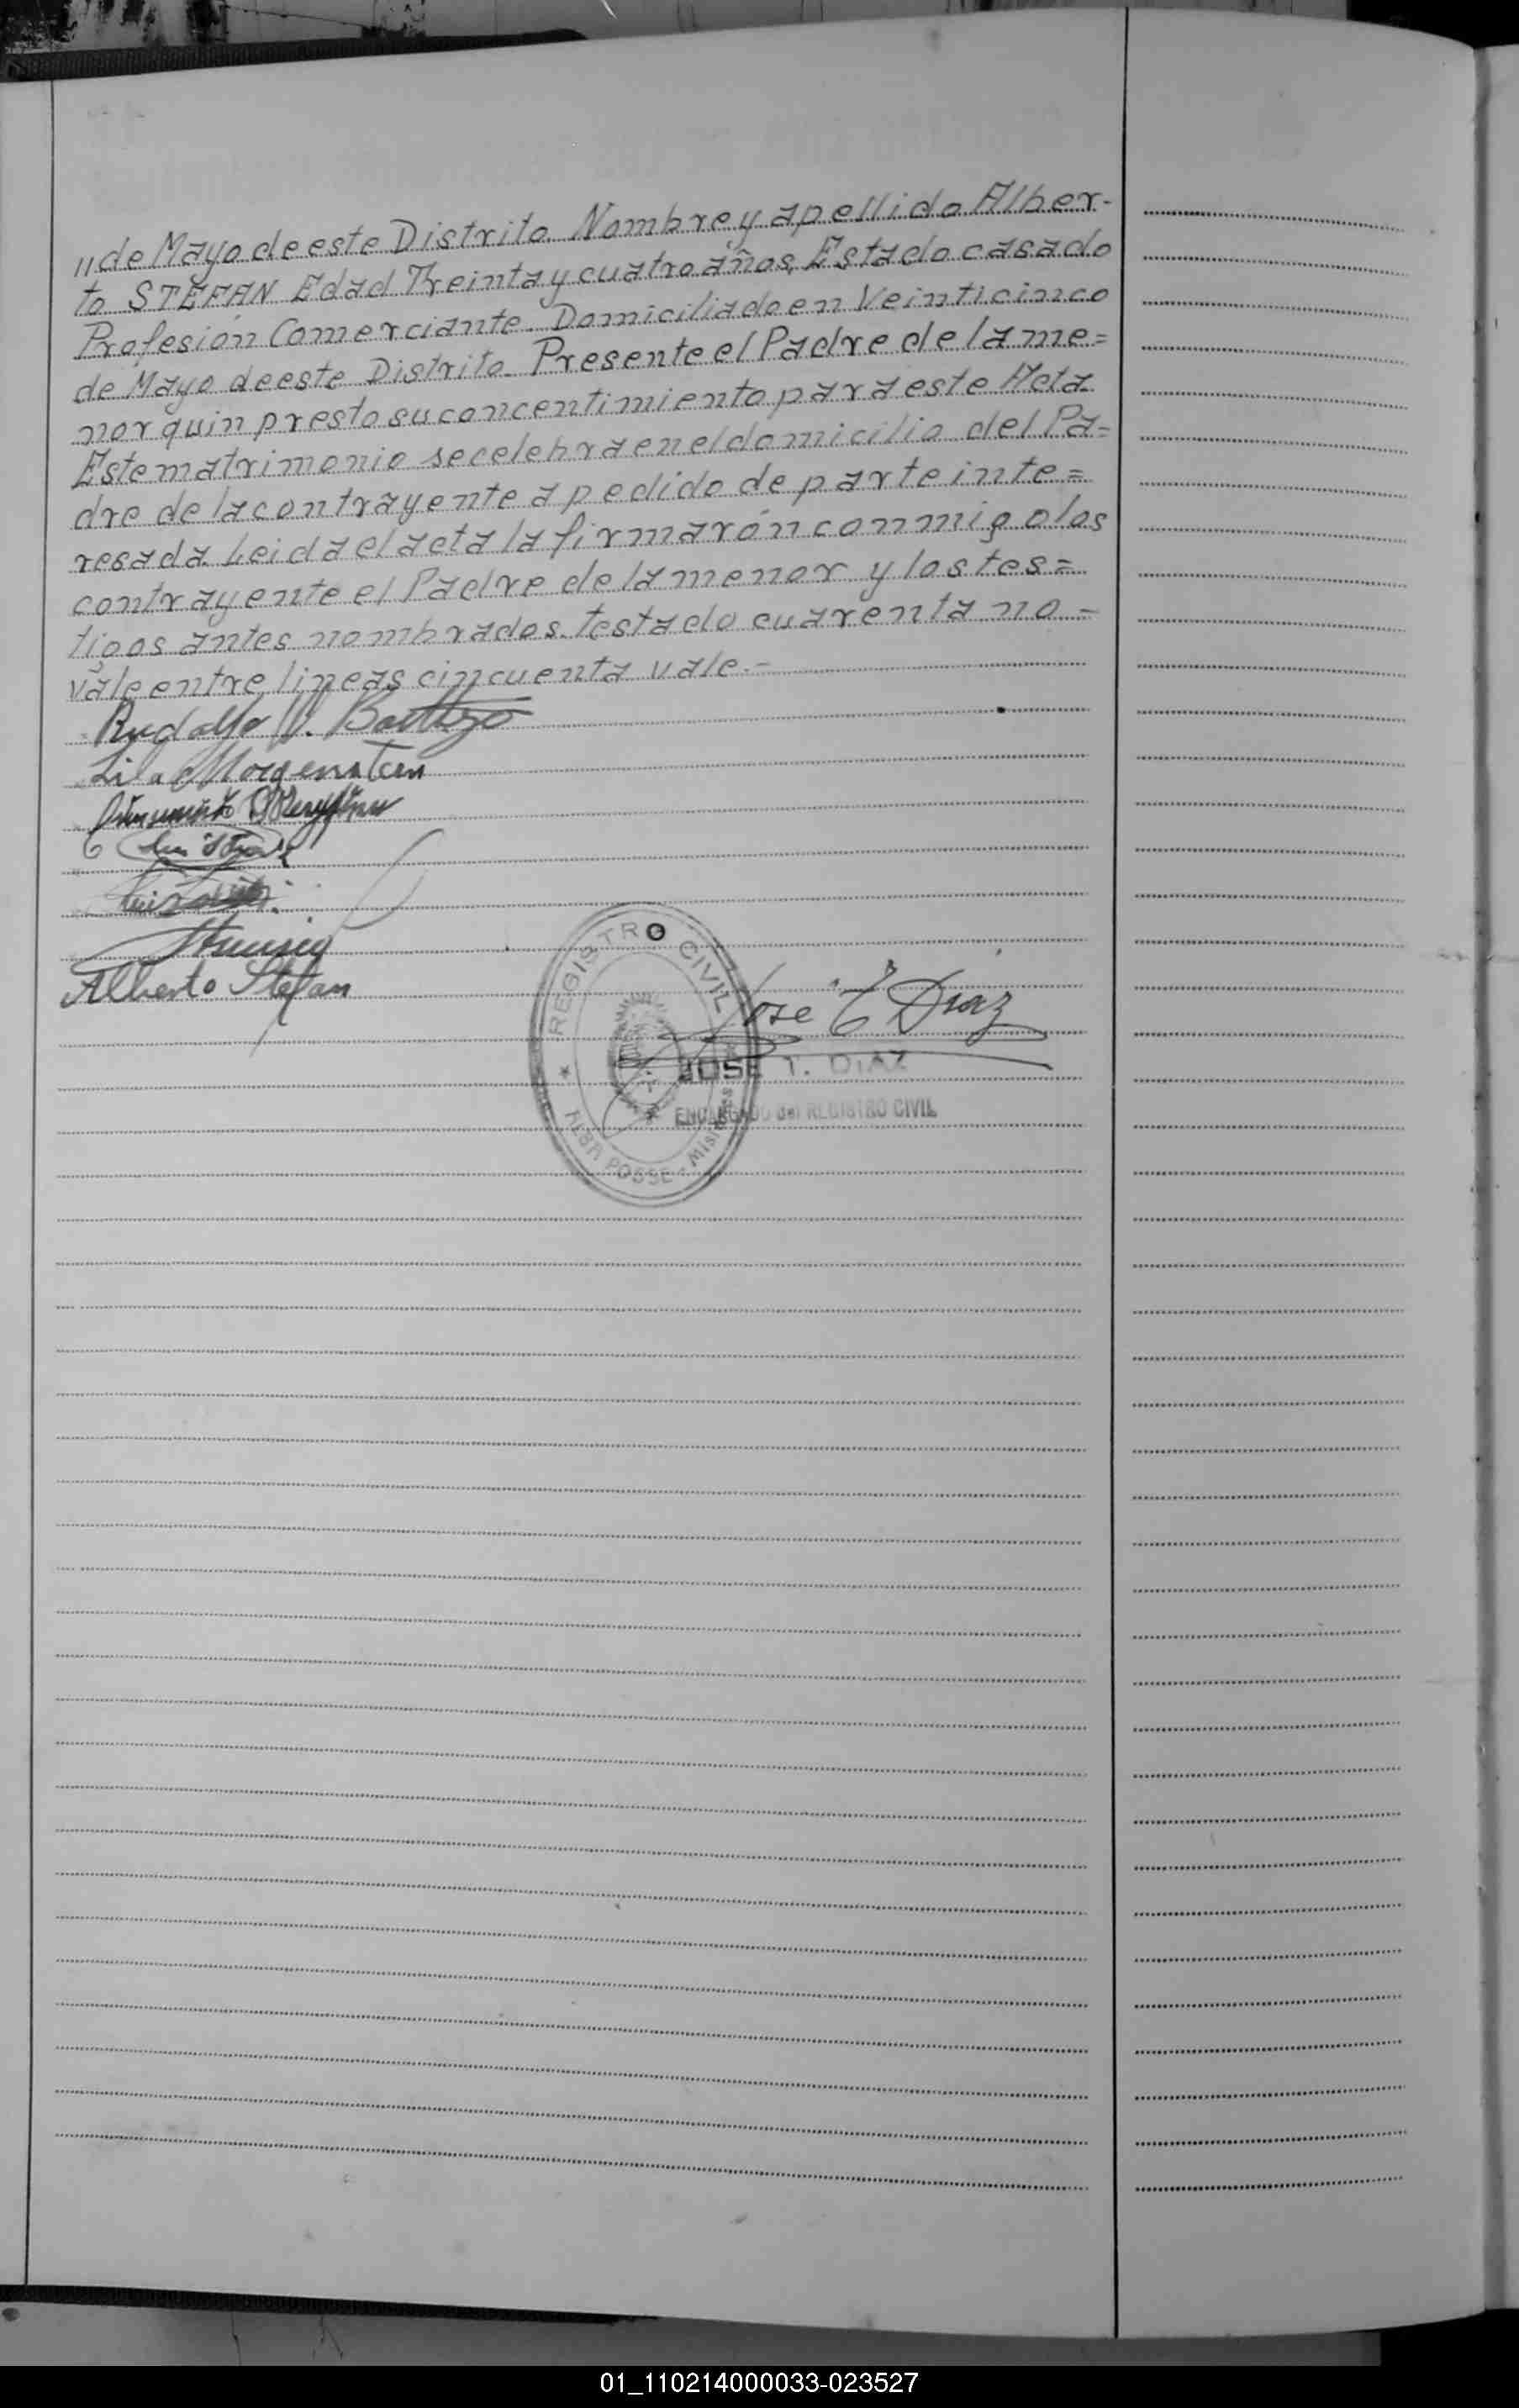 "de Mayo de este Distrito. Nombre y apellido Alber-
to STEFAN Edad Treinta y cuatro años, Estado casado
Profesión Comerciante. Domiciliado en Veinticinco
de Mayo de este Distrito. Presente el Padre de la me=
nor quin presto su concentimiento para este Acta.
Este matrimonio se celebra en el domicilio del Pa=
dre de la contrayente a pedido de parte inte=
resada. Leida el acta la firmarón conmigo los
contrayente el Padre de la menor y los tes=
tigos antes nombrados. testado cuarenta no-
vale entre lineas cincuenta vale.-
Rodolfo
Lila Morgenstern
Alberto Stefan
Jose T Diaz
REGISTRO CIVIL
ALBA POSSE - Misiones
JOSE T. DIAZ
ENCARGADO del REGISTRO CIVIL
01_110214000033-023527